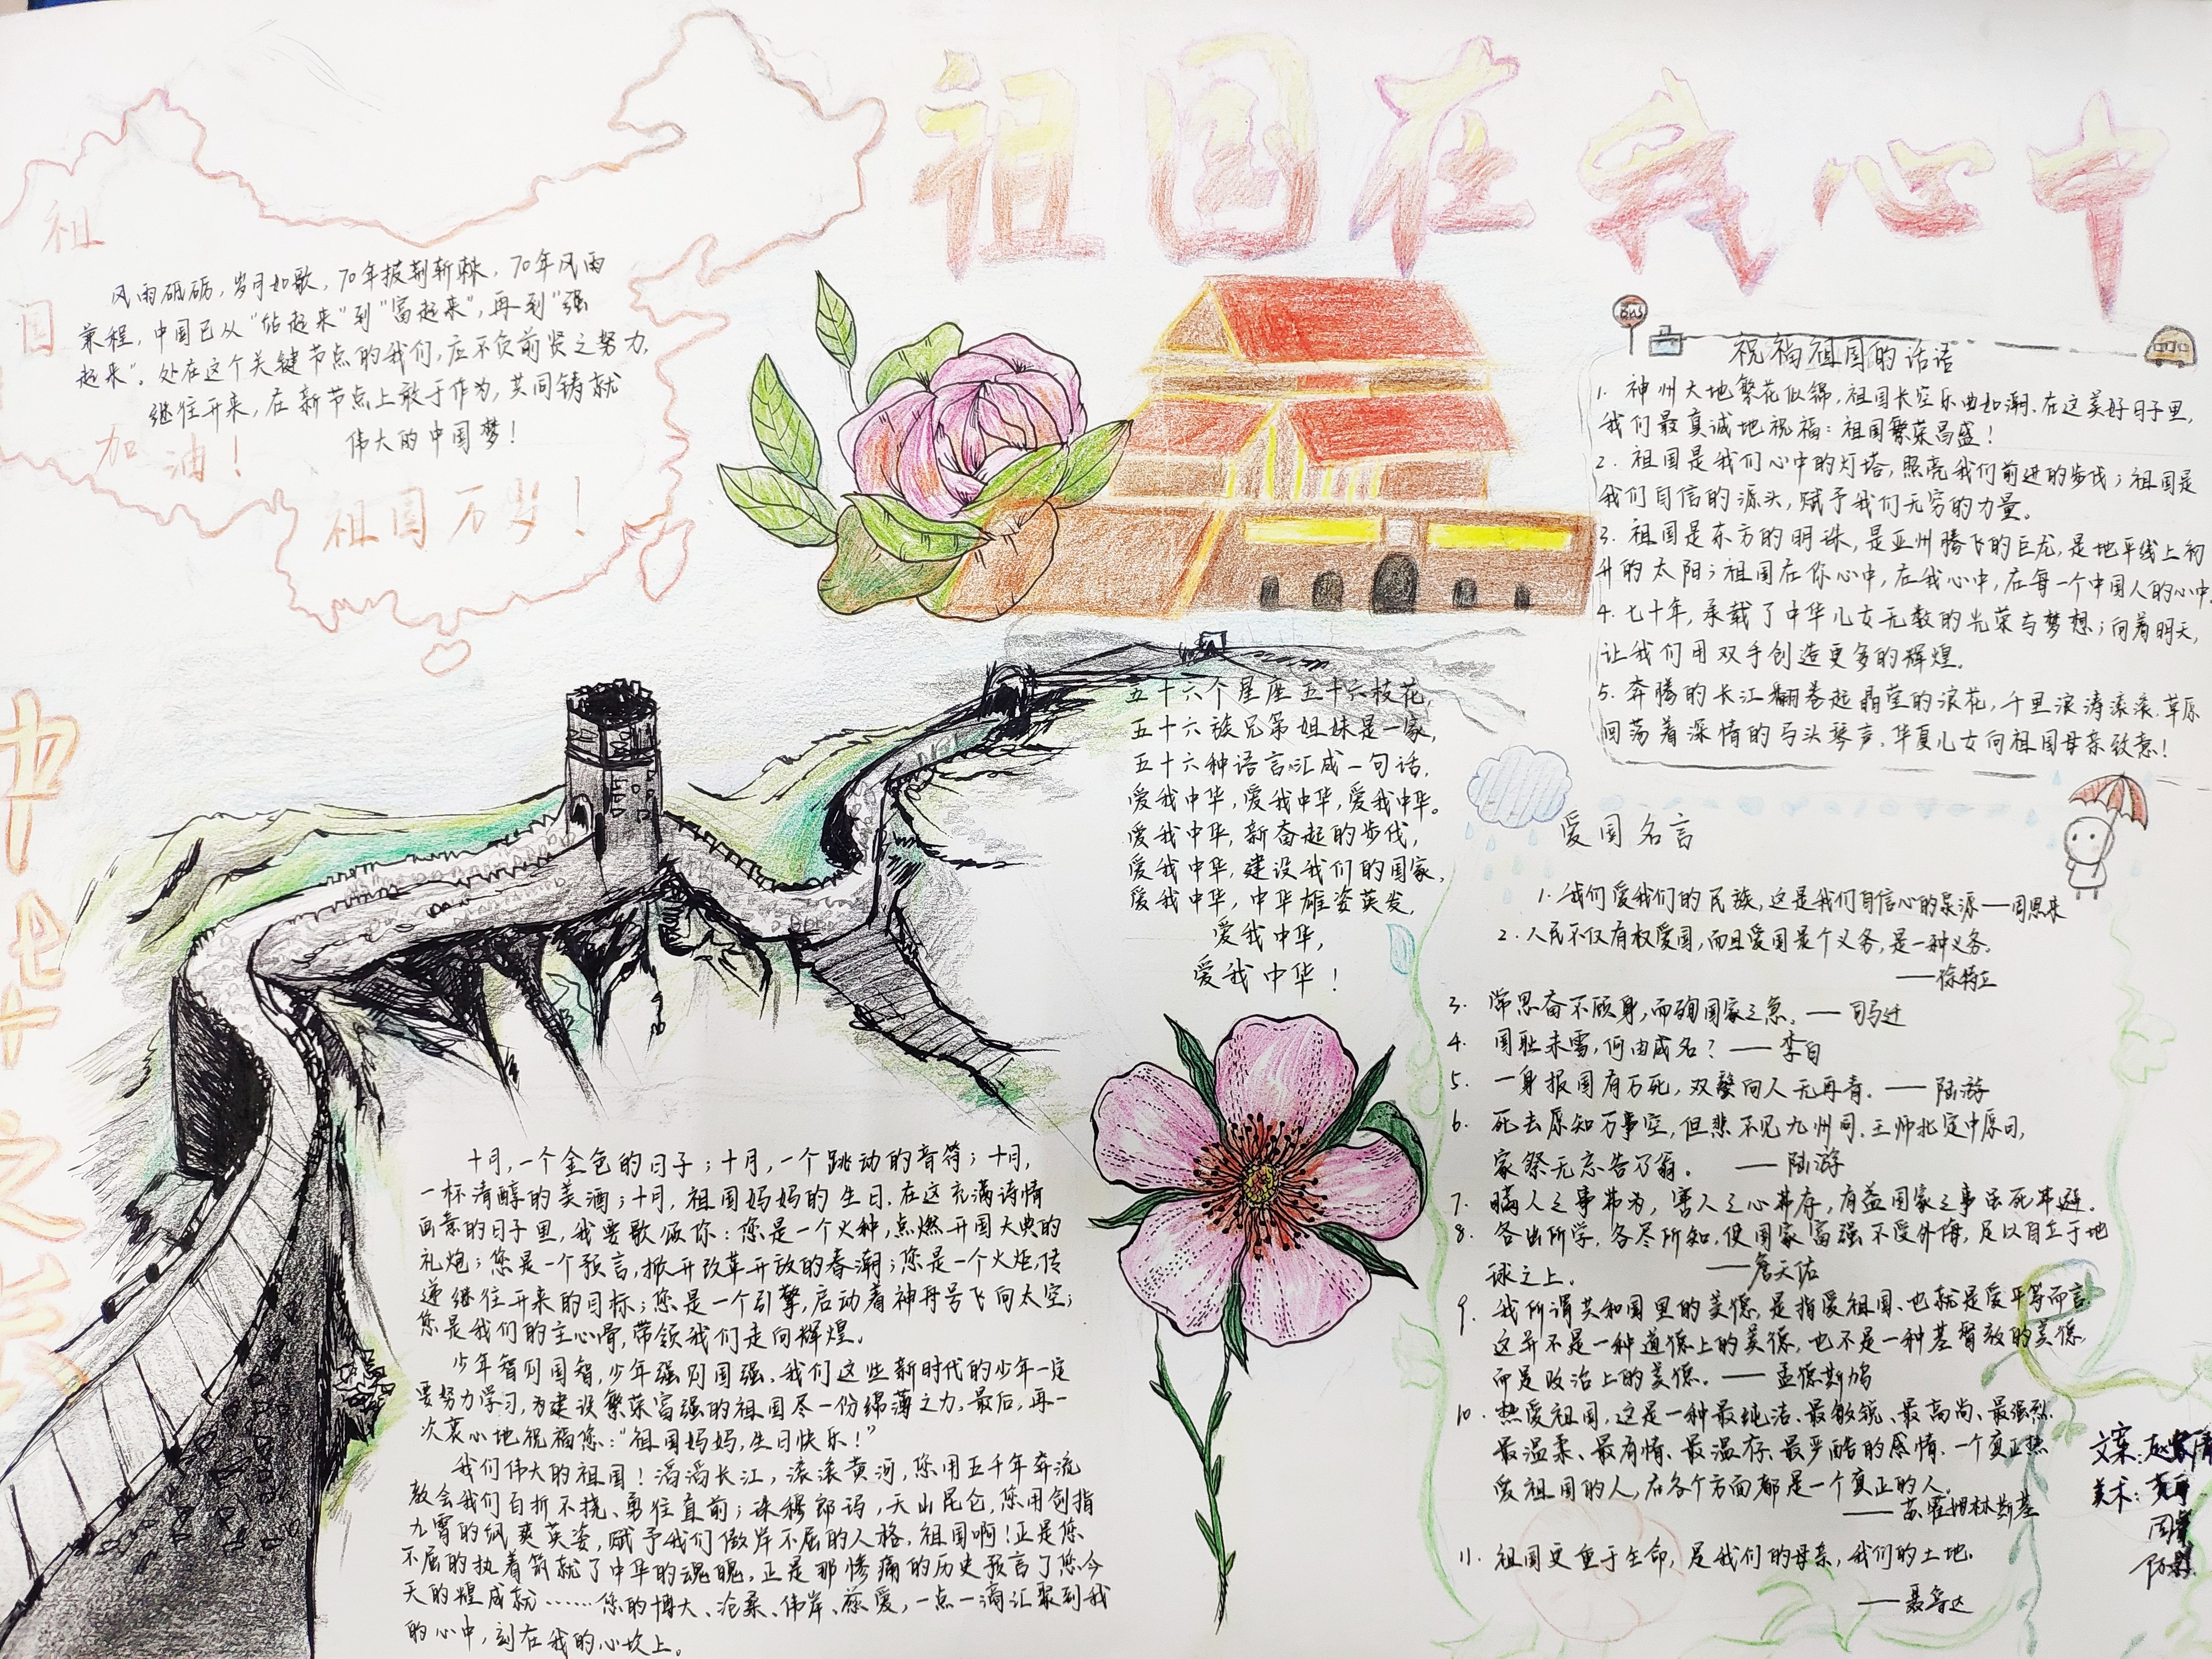 祖国在我心中
祖
国
加
油！
风雨砥砺，岁月如歌，70年披荆斩棘，70年风雨
兼程，中国已从“站起来”到“富起来”，再到“强
起来”。处在这个关键节点的我们，应不负前贤之努力，
继往开来，在新节点上敢于作为，共同铸就
伟大的中国梦！
祖国万岁！
祝福祖国的话语
Bus
1. 神州大地繁花似锦，祖国长空乐曲如潮.在这美好日子里，
我们最真诚地祝福：祖国繁荣昌盛！
2. 祖国是我们心中的灯塔，照亮我们前进的步伐；祖国是
我们自信的源头，赋予我们无穷的力量。
3. 祖国是东方的明珠，是亚州腾飞的巨龙，是地平线上初
升的太阳；祖国在你心中，在我心中，在每一个中国人的心中.
4. 七十年，承载了中华儿女无数的光荣与梦想；向着明天，
让我们用双手创造更多的辉煌。
5. 奔腾的长江翻卷起晶莹的浪花，千里浪涛滚滚.草原
回荡着深情的马头琴声.华夏儿女向祖国母亲致意！
五十六个星座五十六枝花，
五十六族兄弟姐妹是一家，
五十六种语言汇成一句话，
爱我中华，爱我中华，爱我中华。
爱我中华，新奋起的步伐，
爱我中华，建设我们的国家，
爱我中华，中华雄姿英发，
爱我中华，
爱我中华！
爱国名言
1. 我们爱我们的民族，这是我们自信心的泉源——周恩来
2. 人民不仅有权爱国，而且爱国是个义务，是一种义务。
——徐特立
3. 常思奋不顾身，而殉国家之急。——司马迁
4. 国耻未雪，何由成名？——李白
5. 一身报国有万死，双鬓向人无再青。——陆游
6. 死去原知万事空，但悲不见九州同.王师北定中原日，
家祭无忘告乃翁。——陆游
7. 瞒人之事弗为，害人之心弗存，有益国家之事虽死弗避。
8. 各出所学，各尽所知，使国家富强不受外侮，足以自立于地
球之上。——詹天佑
9. 我所谓共和国里的美德，是指爱祖国、也就是爱平等而言.
这并不是一种道德上的美德，也不是一种基督教的美德，
而是政治上的美德。——孟德斯鸠
10. 热爱祖国，这是一种最纯洁、最敏锐、最高尚、最强烈、
最温柔、最有情、最温存、最严酷的感情.一个真正热
爱祖国的人，在各个方面都是一个真正的人。
——苏霍姆林斯基
11. 祖国更重于生命，是我们的母亲，我们的土地.
——聂鲁达
十月，一个金色的日子；十月，一个跳动的音符；十月，
一杯清醇的美酒；十月，祖国妈妈的生日.在这充满诗情
画意的日子里，我要歌颂你：您是一个火种，点燃开国大典的
礼炮；您是一个预言，掀开改革开放的春潮；您是一个火炬，传
递继往开来的目标；您是一个引擎，启动着神舟号飞向太空；
您是我们的主心骨，带领我们走向辉煌。
少年智则国智，少年强则国强.我们这些新时代的少年一定
要努力学习，为建设繁荣富强的祖国尽一份绵薄之力，最后，再一
次衷心地祝福您：“祖国妈妈，生日快乐！”
我们伟大的祖国！滔滔长江，滚滚黄河，您用五千年奔流
教会我们百折不挠、勇往直前；珠穆郎玛，天山昆仑，您用剑指
九霄的飒爽英姿，赋予我们傲岸不屈的人格.祖国啊！正是您
不屈的执着筑就了中华的魂魄，正是那惨痛的历史预言了您今
天的煌成就……您的博大、沧桑、伟岸、慈爱，一点一滴汇聚到我
的心中，刻在我的心坎上。
文案：
美术：